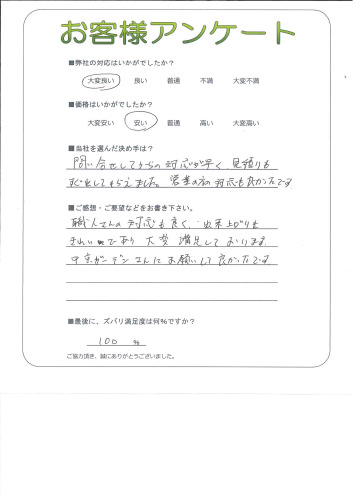 お客様アンケート
■弊社の対応はいかがでしたか？
大変良い 良い 普通 不満 大変不満
■価格はいかがでしたか？
大変安い 安い 普通 高い 大変高い
■当社を選んだ決め手は？
問い合せしてからの対応が早く 見積りも
すぐ出してもらえました。営業の方の対応も良かったです
■ご感想・ご要望などをお書き下さい。
職人さんの対応も良く、出来上がりも
きれいであり 大変 満足しております。
中京ガーデンさんにお願いして良かったです
■最後に、ズバリ満足度は何%ですか？
100 %
ご協力頂き、誠にありがとうございました。